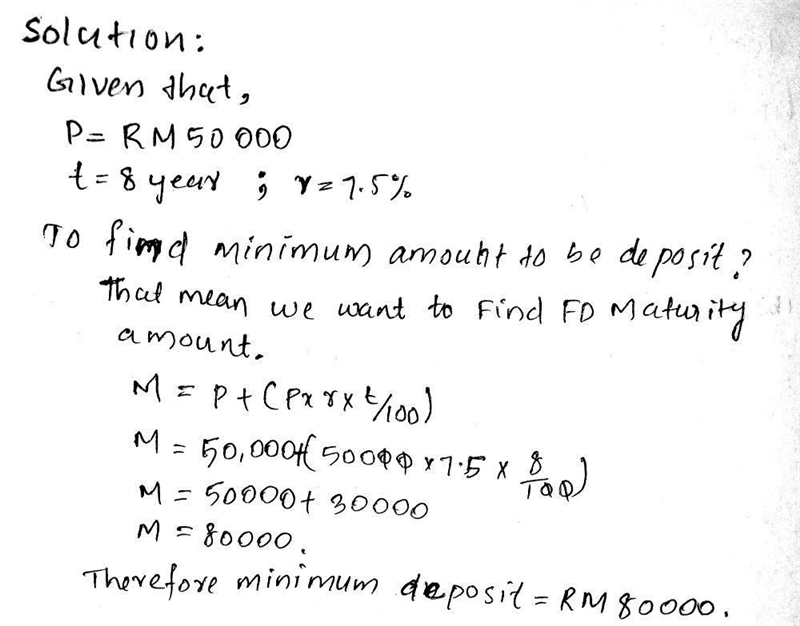 Solution:
Given that,
P = RM 50 000
t = 8 year ; r = 7.5%
To find minimum amount to be deposit?
That mean we want to Find FD Maturity
amount.
M = P + (P x r x t/100)
M = 50,000+(50000 x 7.5 x 8/100)
M = 50000 + 30000
M = 80000.
Therefore minimum deposit = RM 80000.